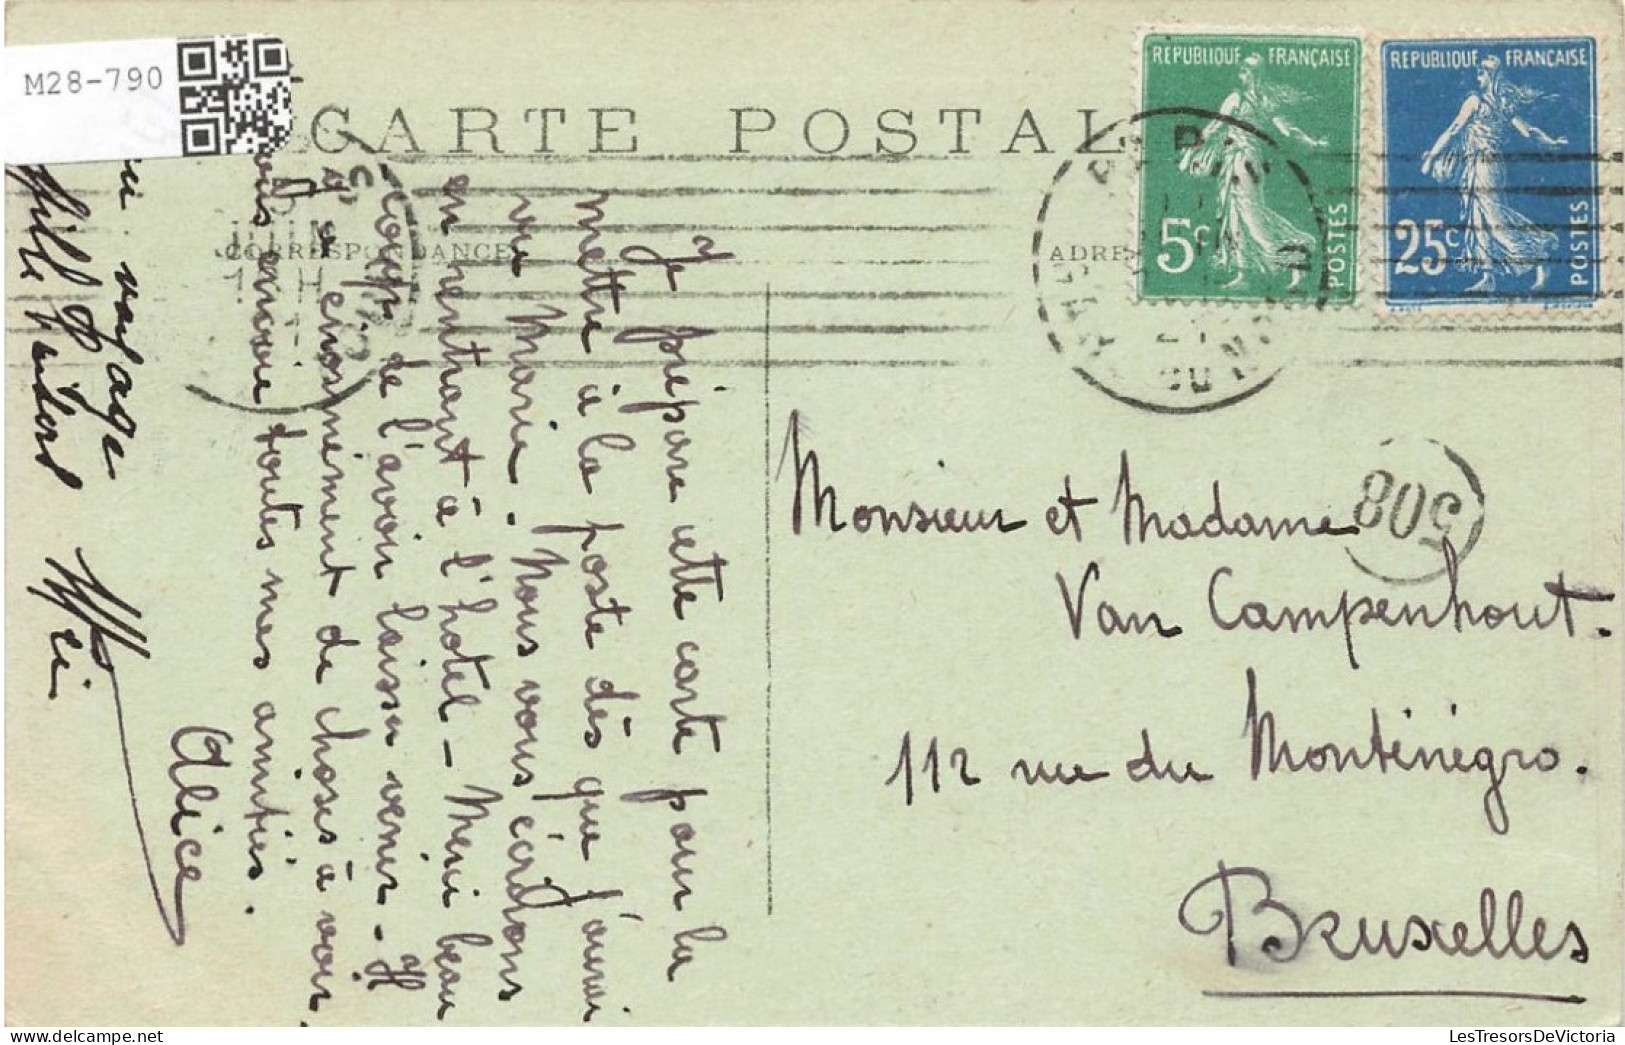 M28-790
CARTE POSTALE
CORRESPONDANCE
ADRE
REPUBLIQUE FRANÇAISE
5c
POSTES
REPUBLIQUE FRANÇAISE
25c
POSTES
508
Je prépare cette carte pour la
mettre à la poste dès que j'aurai
vu Marie. Nous vous écrirons
en rentrant à l'hôtel - Merci beau
coup de l'avoir laissé venir - Il
y a énormément de choses à voir,
vous envoie toutes mes amitiés.
Alice
voyage
Mille
Monsieur et Madame
Van Campenhout.
112 rue du Monténégro.
Bruxelles
LesTresorsDeVictoria.com